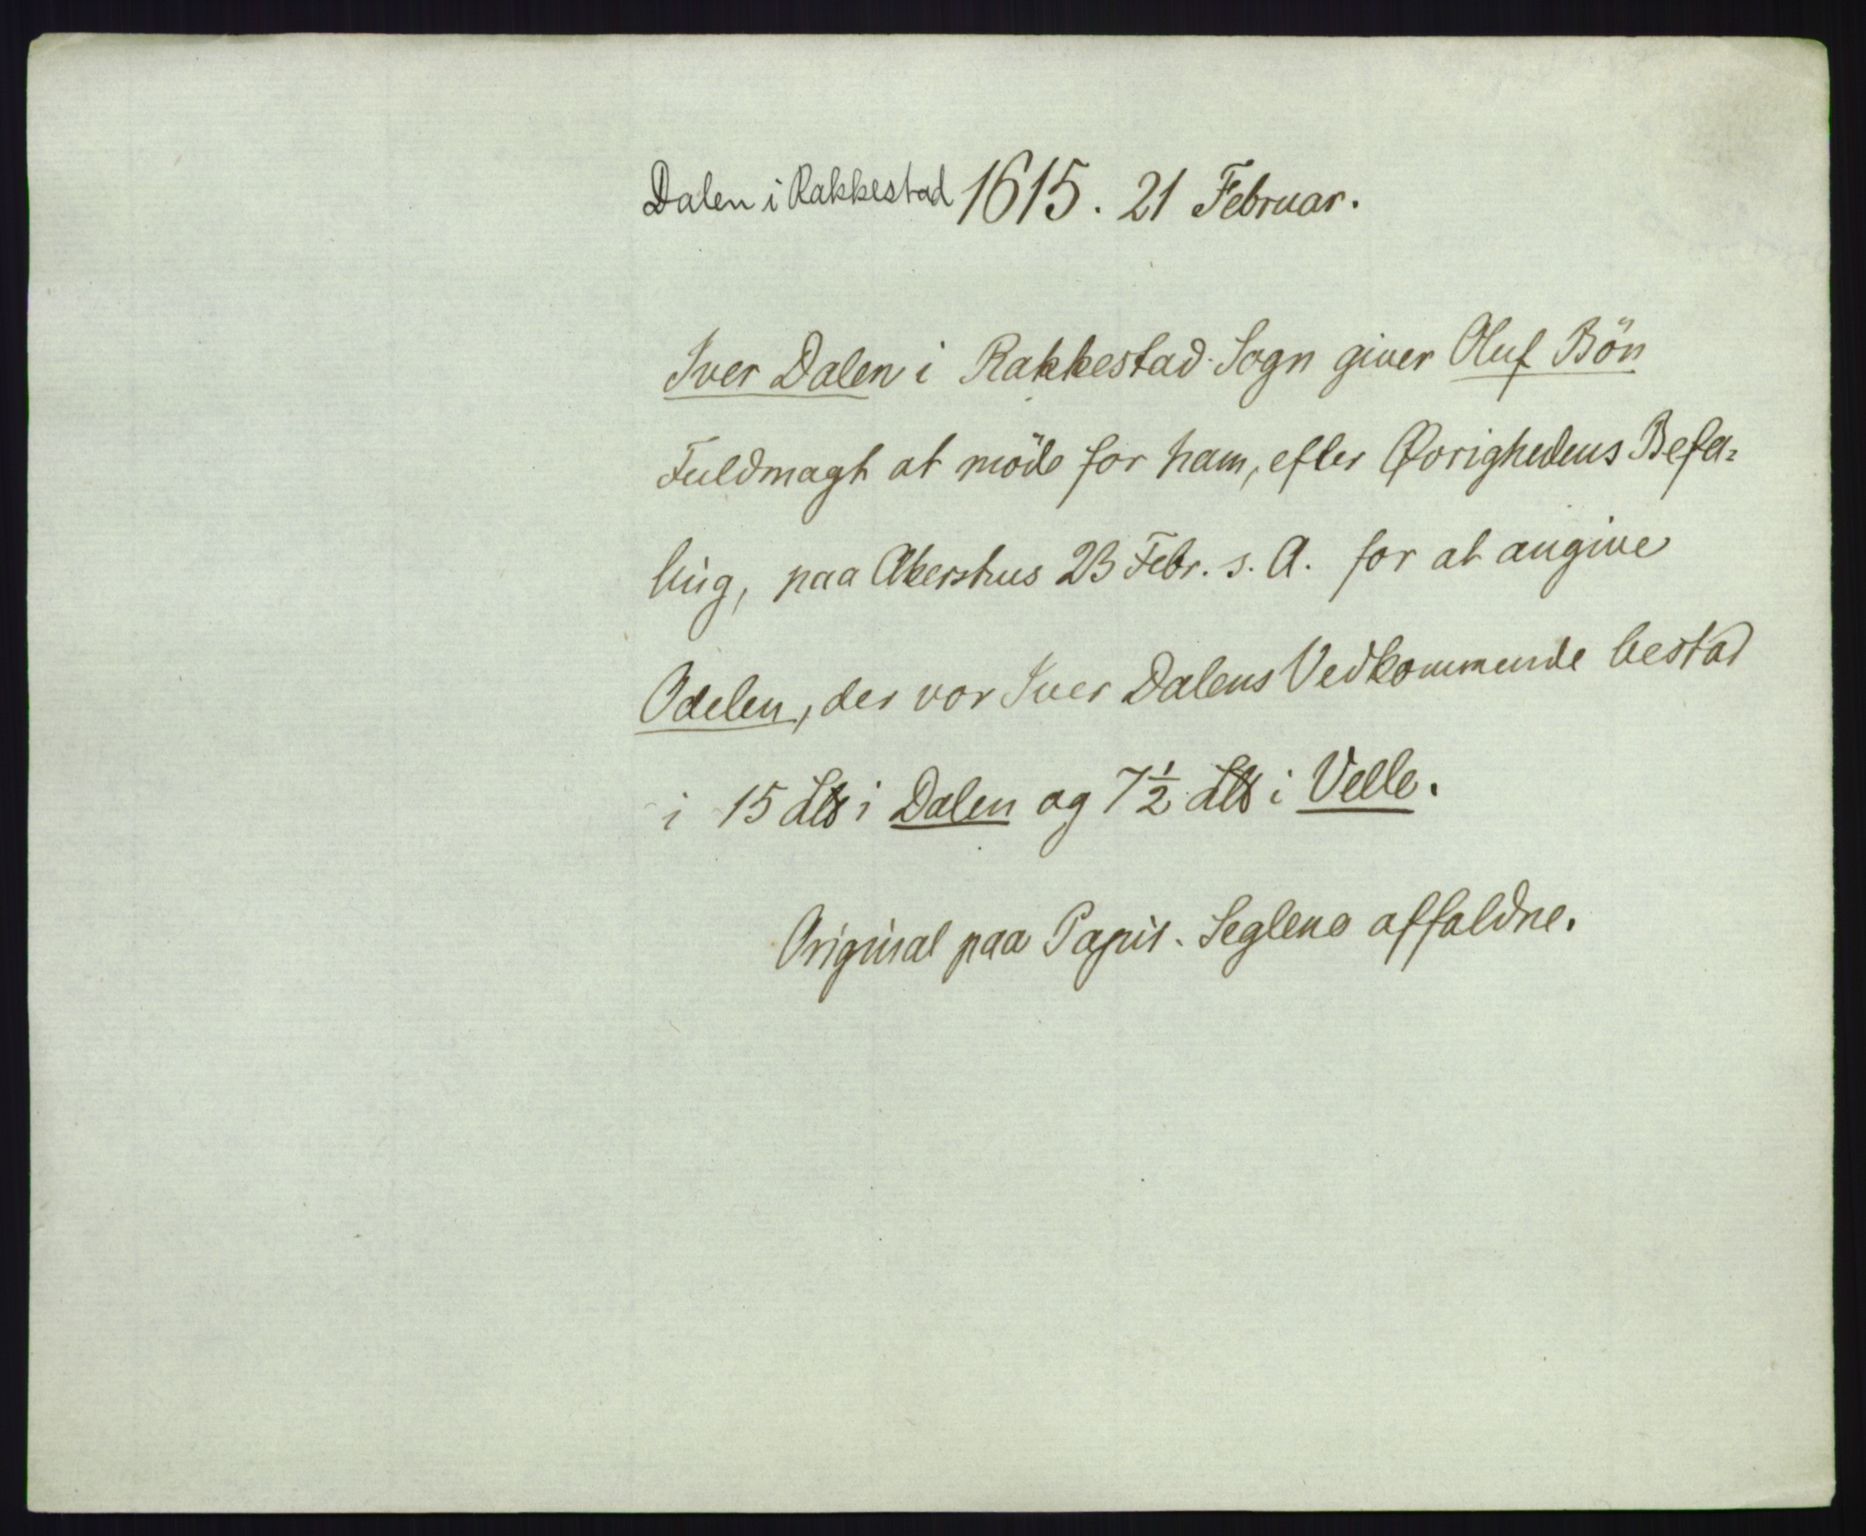 Dalen i Rakkestad 1615. 21 Februar.
Iver Dalen i Rakkestad Sogn giver Oluf Bön
Fuldmagt at möde for ham, efter Øvrighedens Befa=
ling, paa Akershus 23 Febr. s. A. for at angive
Odelen, der vor Iver Dalens Vedkommende bestod
i 15 L℔ i Dalen og 7½ L℔ i Velle.
Original paa Papir. Seglene affaldne.